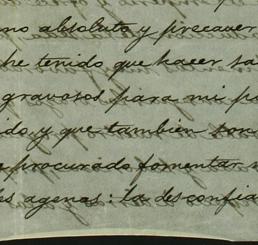 no absoluto y precaver
he tenido que hacer sa
gravosos para mi pa
ido, y que tambien son
procurado fomentar
es agenas: la desconfia